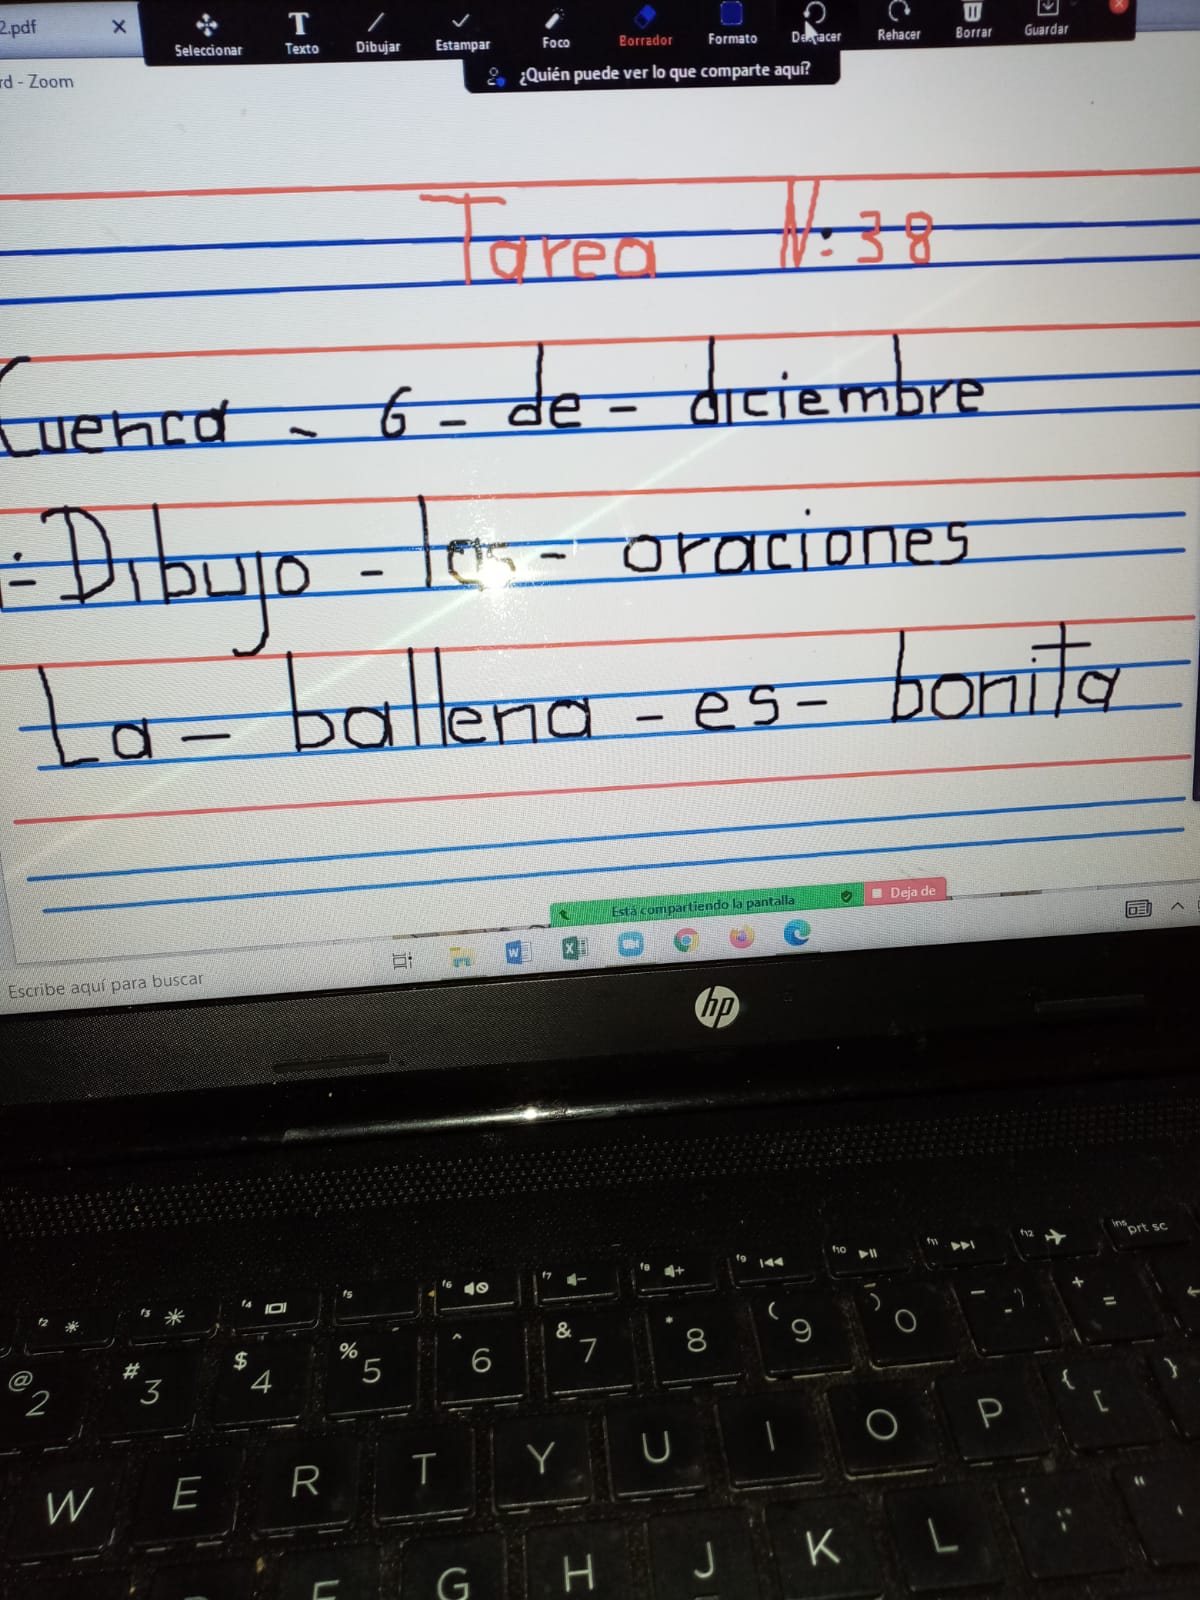 2.pdf
Seleccionar Texto Dibujar Estampar Foco Borrador Formato Deshacer Rehacer Borrar Guardar
rd - Zoom
¿Quién puede ver lo que comparte aquí?
Tarea N: 38
Cuenca - 6 - de - diciembre
:- Dibujo - las - oraciones
La - ballena - es - bonita
Está compartiendo la pantalla Deja de
Escribe aquí para buscar
hp
f2 f3 f4 f5 f6 f7 f8 f9 f10 f11 f12 ins prt sc
@ 2 # 3 $ 4 % 5 ^ 6 & 7 * 8 ( 9 ) 0 - + =
W E R T Y U I O P { [ }
F G H J K L : ; "